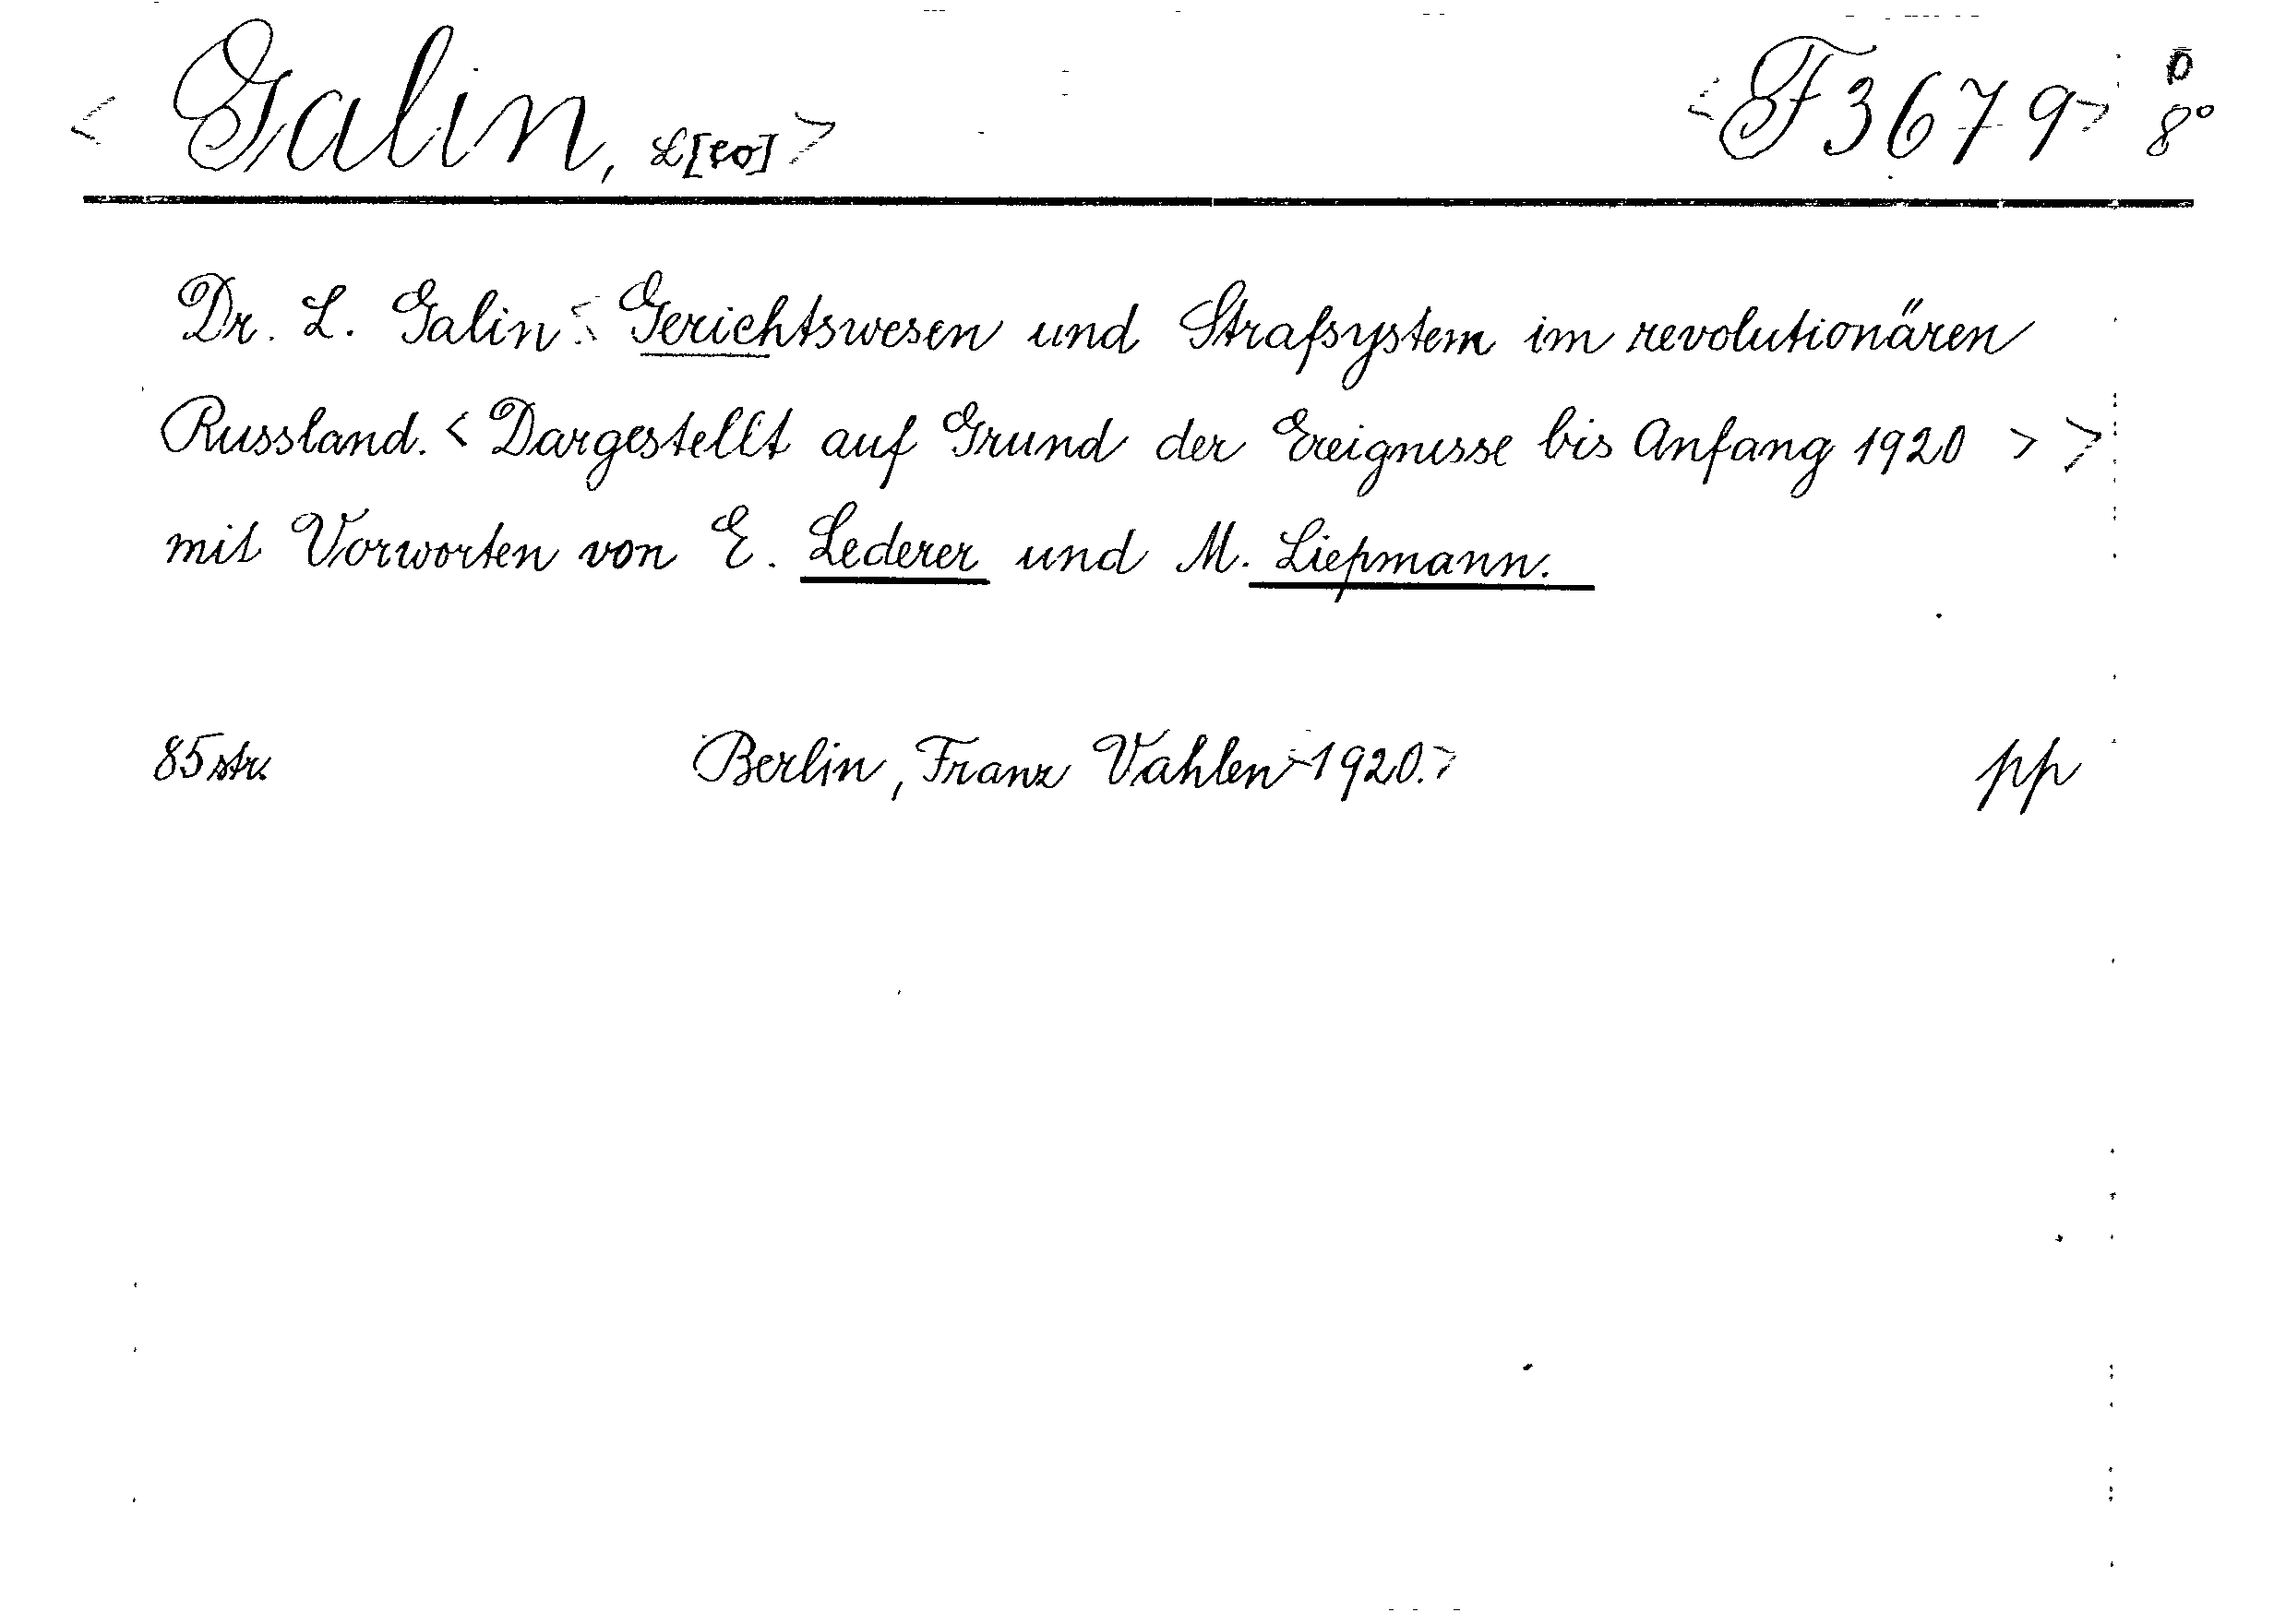 < Galin, L[eo] > < F 3679 > D
8°
Dr. L. Galin < Gerichtswesen und Strafsystem im revolutionären
Russland. < Dargestellt auf Grund der Ereignisse bis Anfang 1920 > >
mit Vorworten von E. Lederer und M. Liepmann.
85 str. Berlin, Franz Vahlen < 1920. > pp